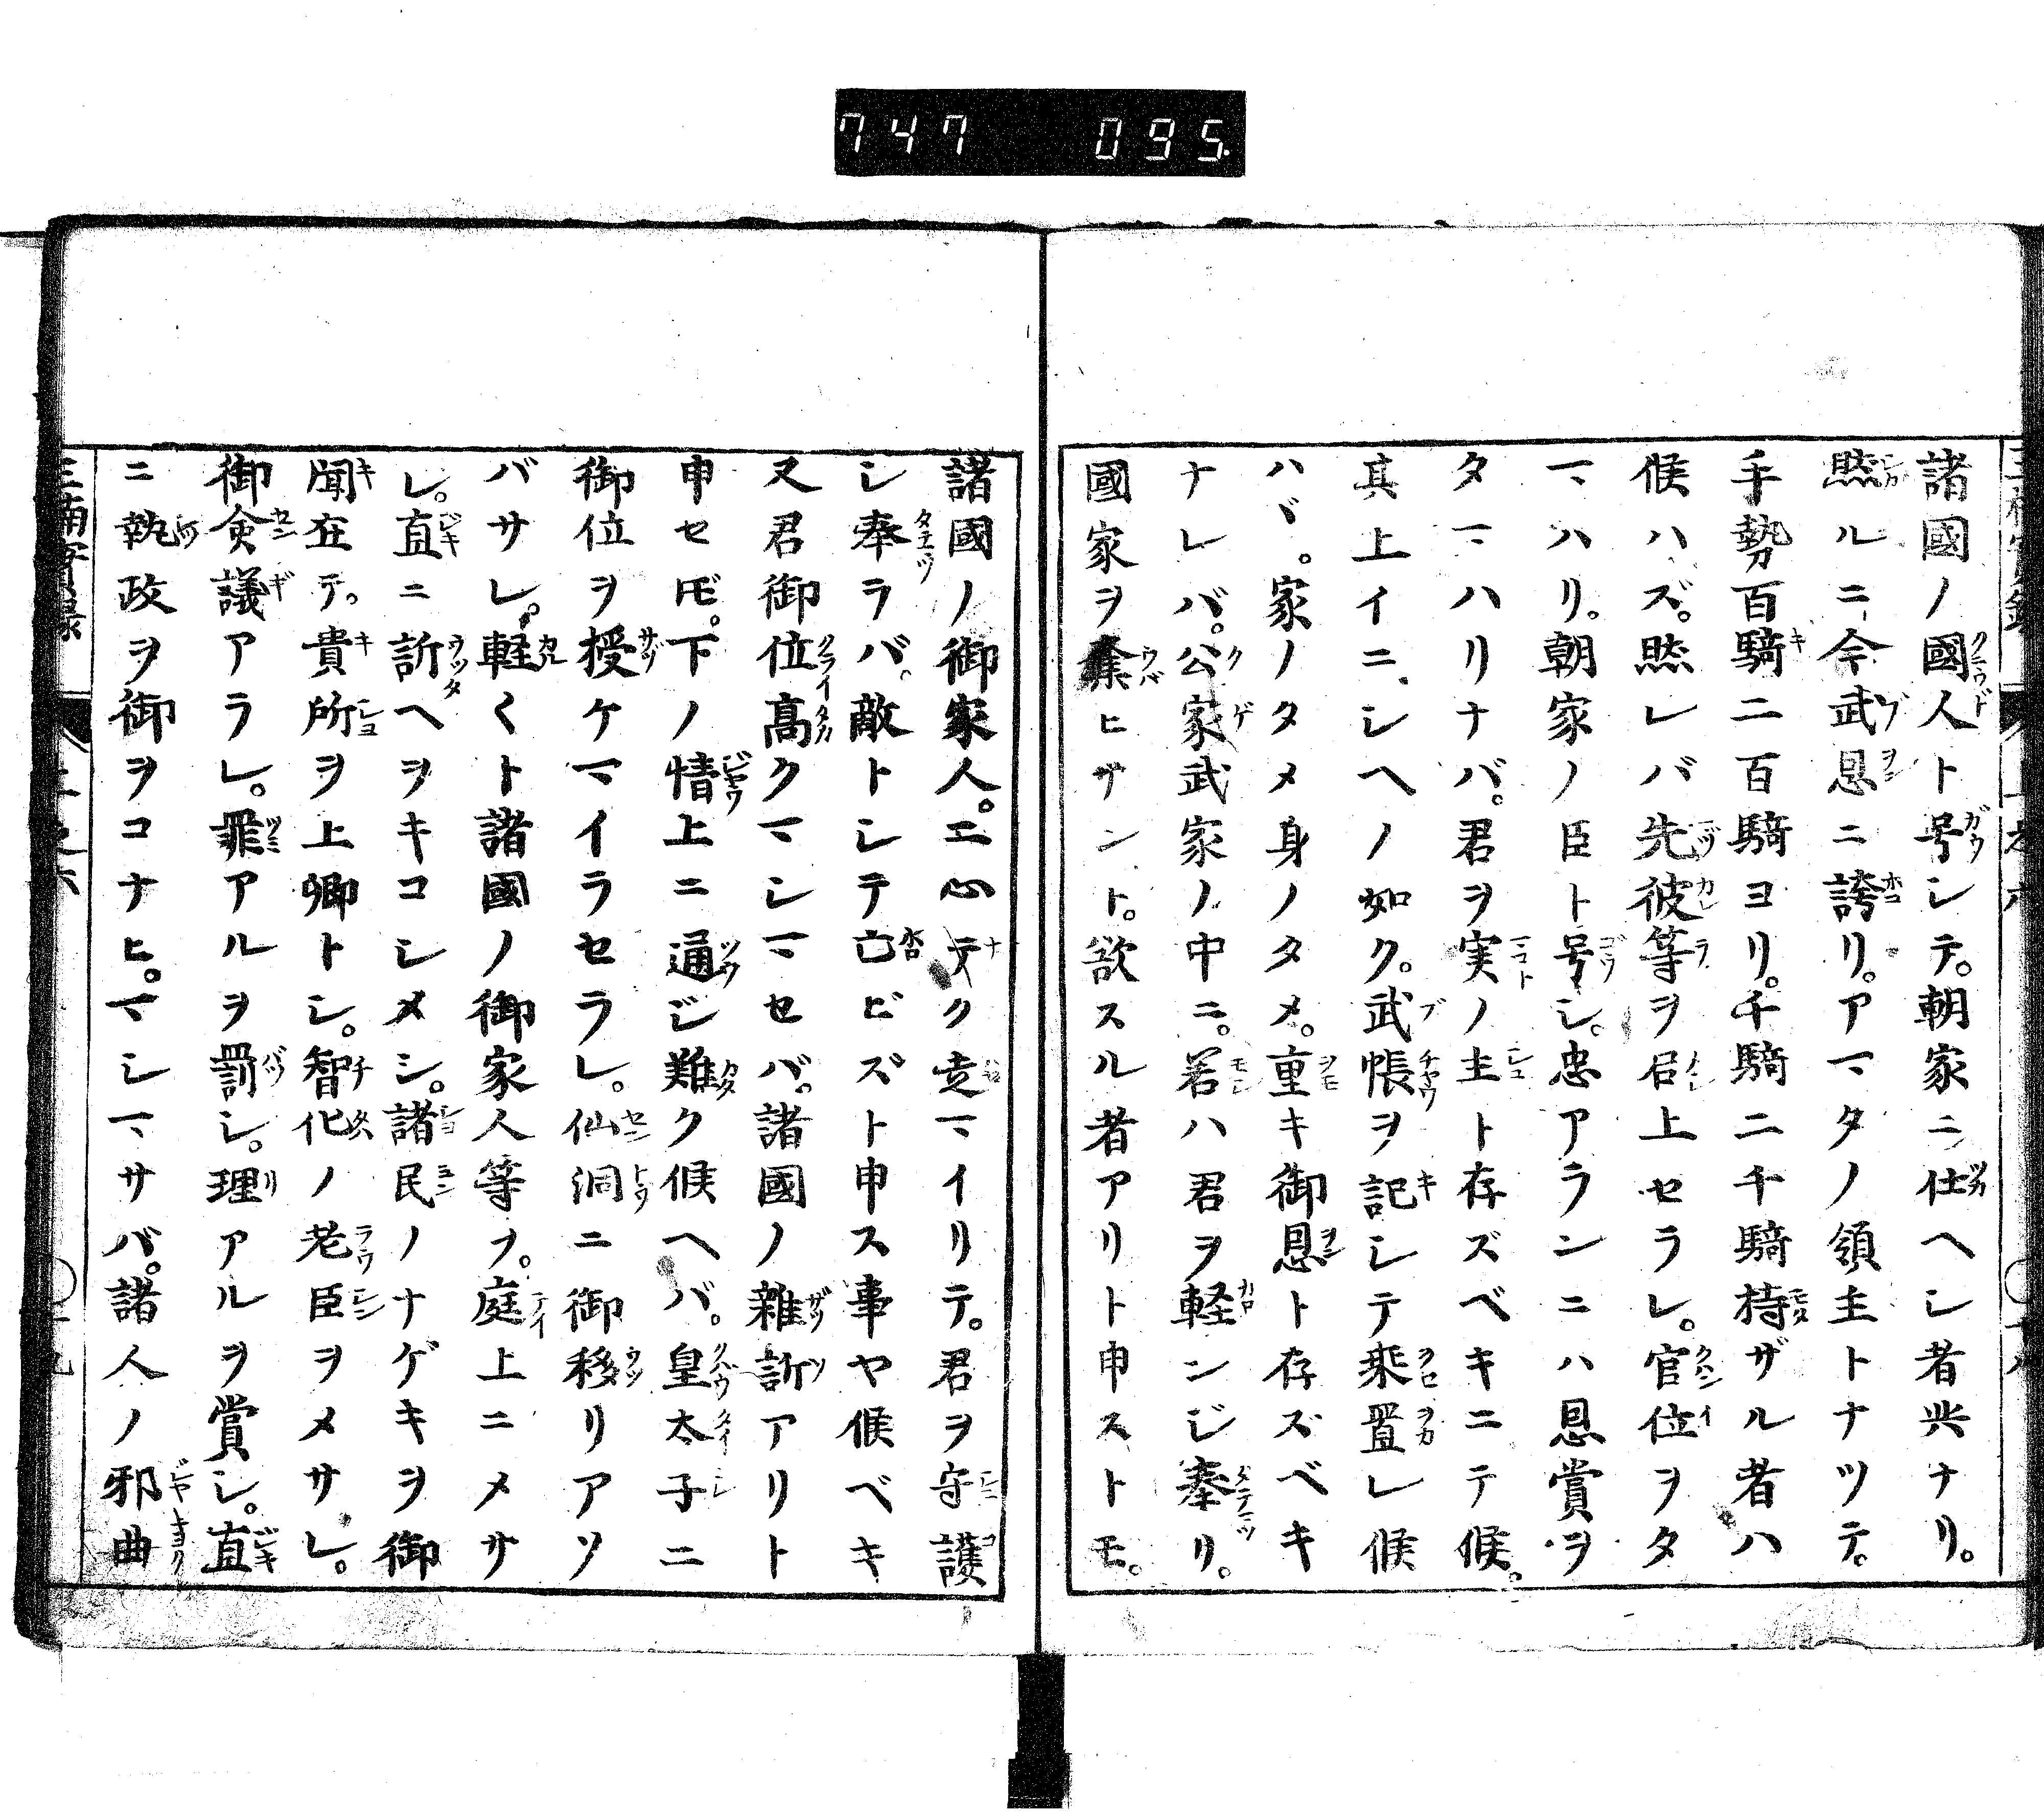 747 095.
諸國ノ國人ト号シテ。朝家ニ仕ヘシ者共ナリ。
然ルニ今武恩ニ誇リ。アマタノ領主トナツテ。
手勢百騎二百騎ヨリ。千騎二千騎持ザル者ハ
候ハズ。然レバ先彼等ヲ召上セラレ。官位ヲタ
マハリ。朝家ノ臣ト号シ。忠アランニハ恩賞ヲ
タマハリナバ。君ヲ実ノ主ト存ズベキニテ候。
其上イニシヘノ如ク。武帳ヲ記シテ乘置レ候
ハヾ。家ノタメ身ノタメ。重キ御恩ト存ズベキ
ナレバ。公家武家ノ中ニ。若ハ君ヲ軽ンジ奉リ。
國家ヲ奪ヒサント。欲スル者アリト申ストモ。
諸國ノ御家人。二心ナク走マイリテ。君ヲ守護
シ奉ラバ。敵トシテ亡ビズト申ス事ヤ候ベキ
又君御位髙クマシマセバ。諸國ノ雜訴アリト
申セ𪜈。下ノ情上ニ通ジ難ク候ヘバ。皇太子ニ
御位ヲ授ケマイラセラレ。仙洞ニ御移リアソ
バサレ。軽〱ト諸國ノ御家人等ヲ。庭上ニメサ
レ。直ニ訴ヘヲキコシメシ。諸民ノナゲキヲ御
聞在テ。貴所ヲ上卿トシ。智化ノ老臣ヲメサレ。
御僉議アラレ。罪アルヲ罰シ。理アルヲ賞シ。直
ニ執政ヲ御ヲコナヒ。マシマサバ。諸人ノ邪曲